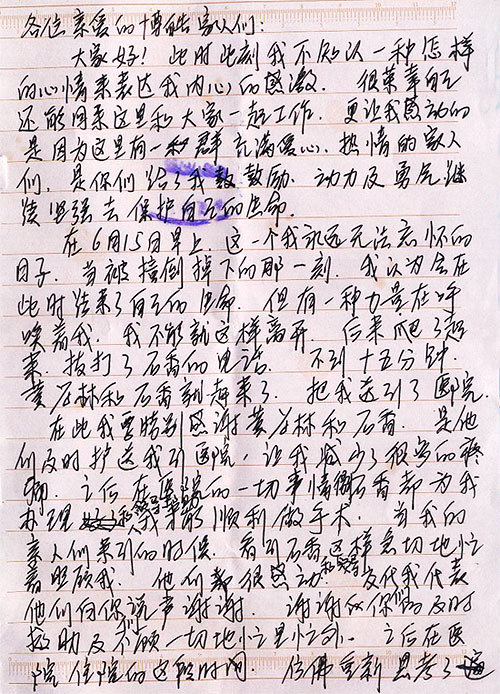 各位亲爱的博皓家人们:
大家好! 此时此刻我不知以一种怎样
的心情来表达我内心的感激. 很荣幸自己
还能回来这里和大家一起工作. 更让我感动的
是因为这里有一群充满爱心、热情的家人
们, 是你们给了我鼓励. 动力及勇气继
续坚强去保护自己的生命.
在6月15日早上. 这一个我永远无法忘怀的
日子. 当被撞倒掉下的那一刻. 我认为会在
此时结束了自己的生命. 但有一种力量在呼
唤着我. 我不能就这样离开. 后来爬了起
来. 拔打了石香的电话. 不到十五分钟.
黄谷林和石香刻赶来了. 把我送到了医院.
在此我要特别感谢黄谷林和石香. 是他
们及时护送我到医院, 让我减少了很多的疼
痛. 之后在医院的一切事情石香都为我
办理 和我能顺利做手术. 当我的
亲人们来到的时候. 看到石香这样急切地忙
着照顾我. 他们都很感动 交代我代表
他们向你说声谢谢. 谢谢你们的及时
救助及不顾一切地忙里忙外. 之后在医
院住院的这段时间. 仿佛重新思考了